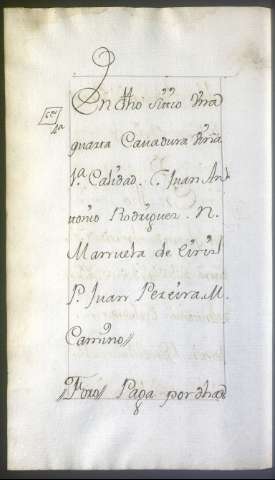 En dho sitio Una
quarta Cavadura Viña
1ª Calidad. C. Juan An-
tonio Rodriguez. N.
Marruela de
P. Juan Pereira. M.
Camino//
Foro// Paga por dha